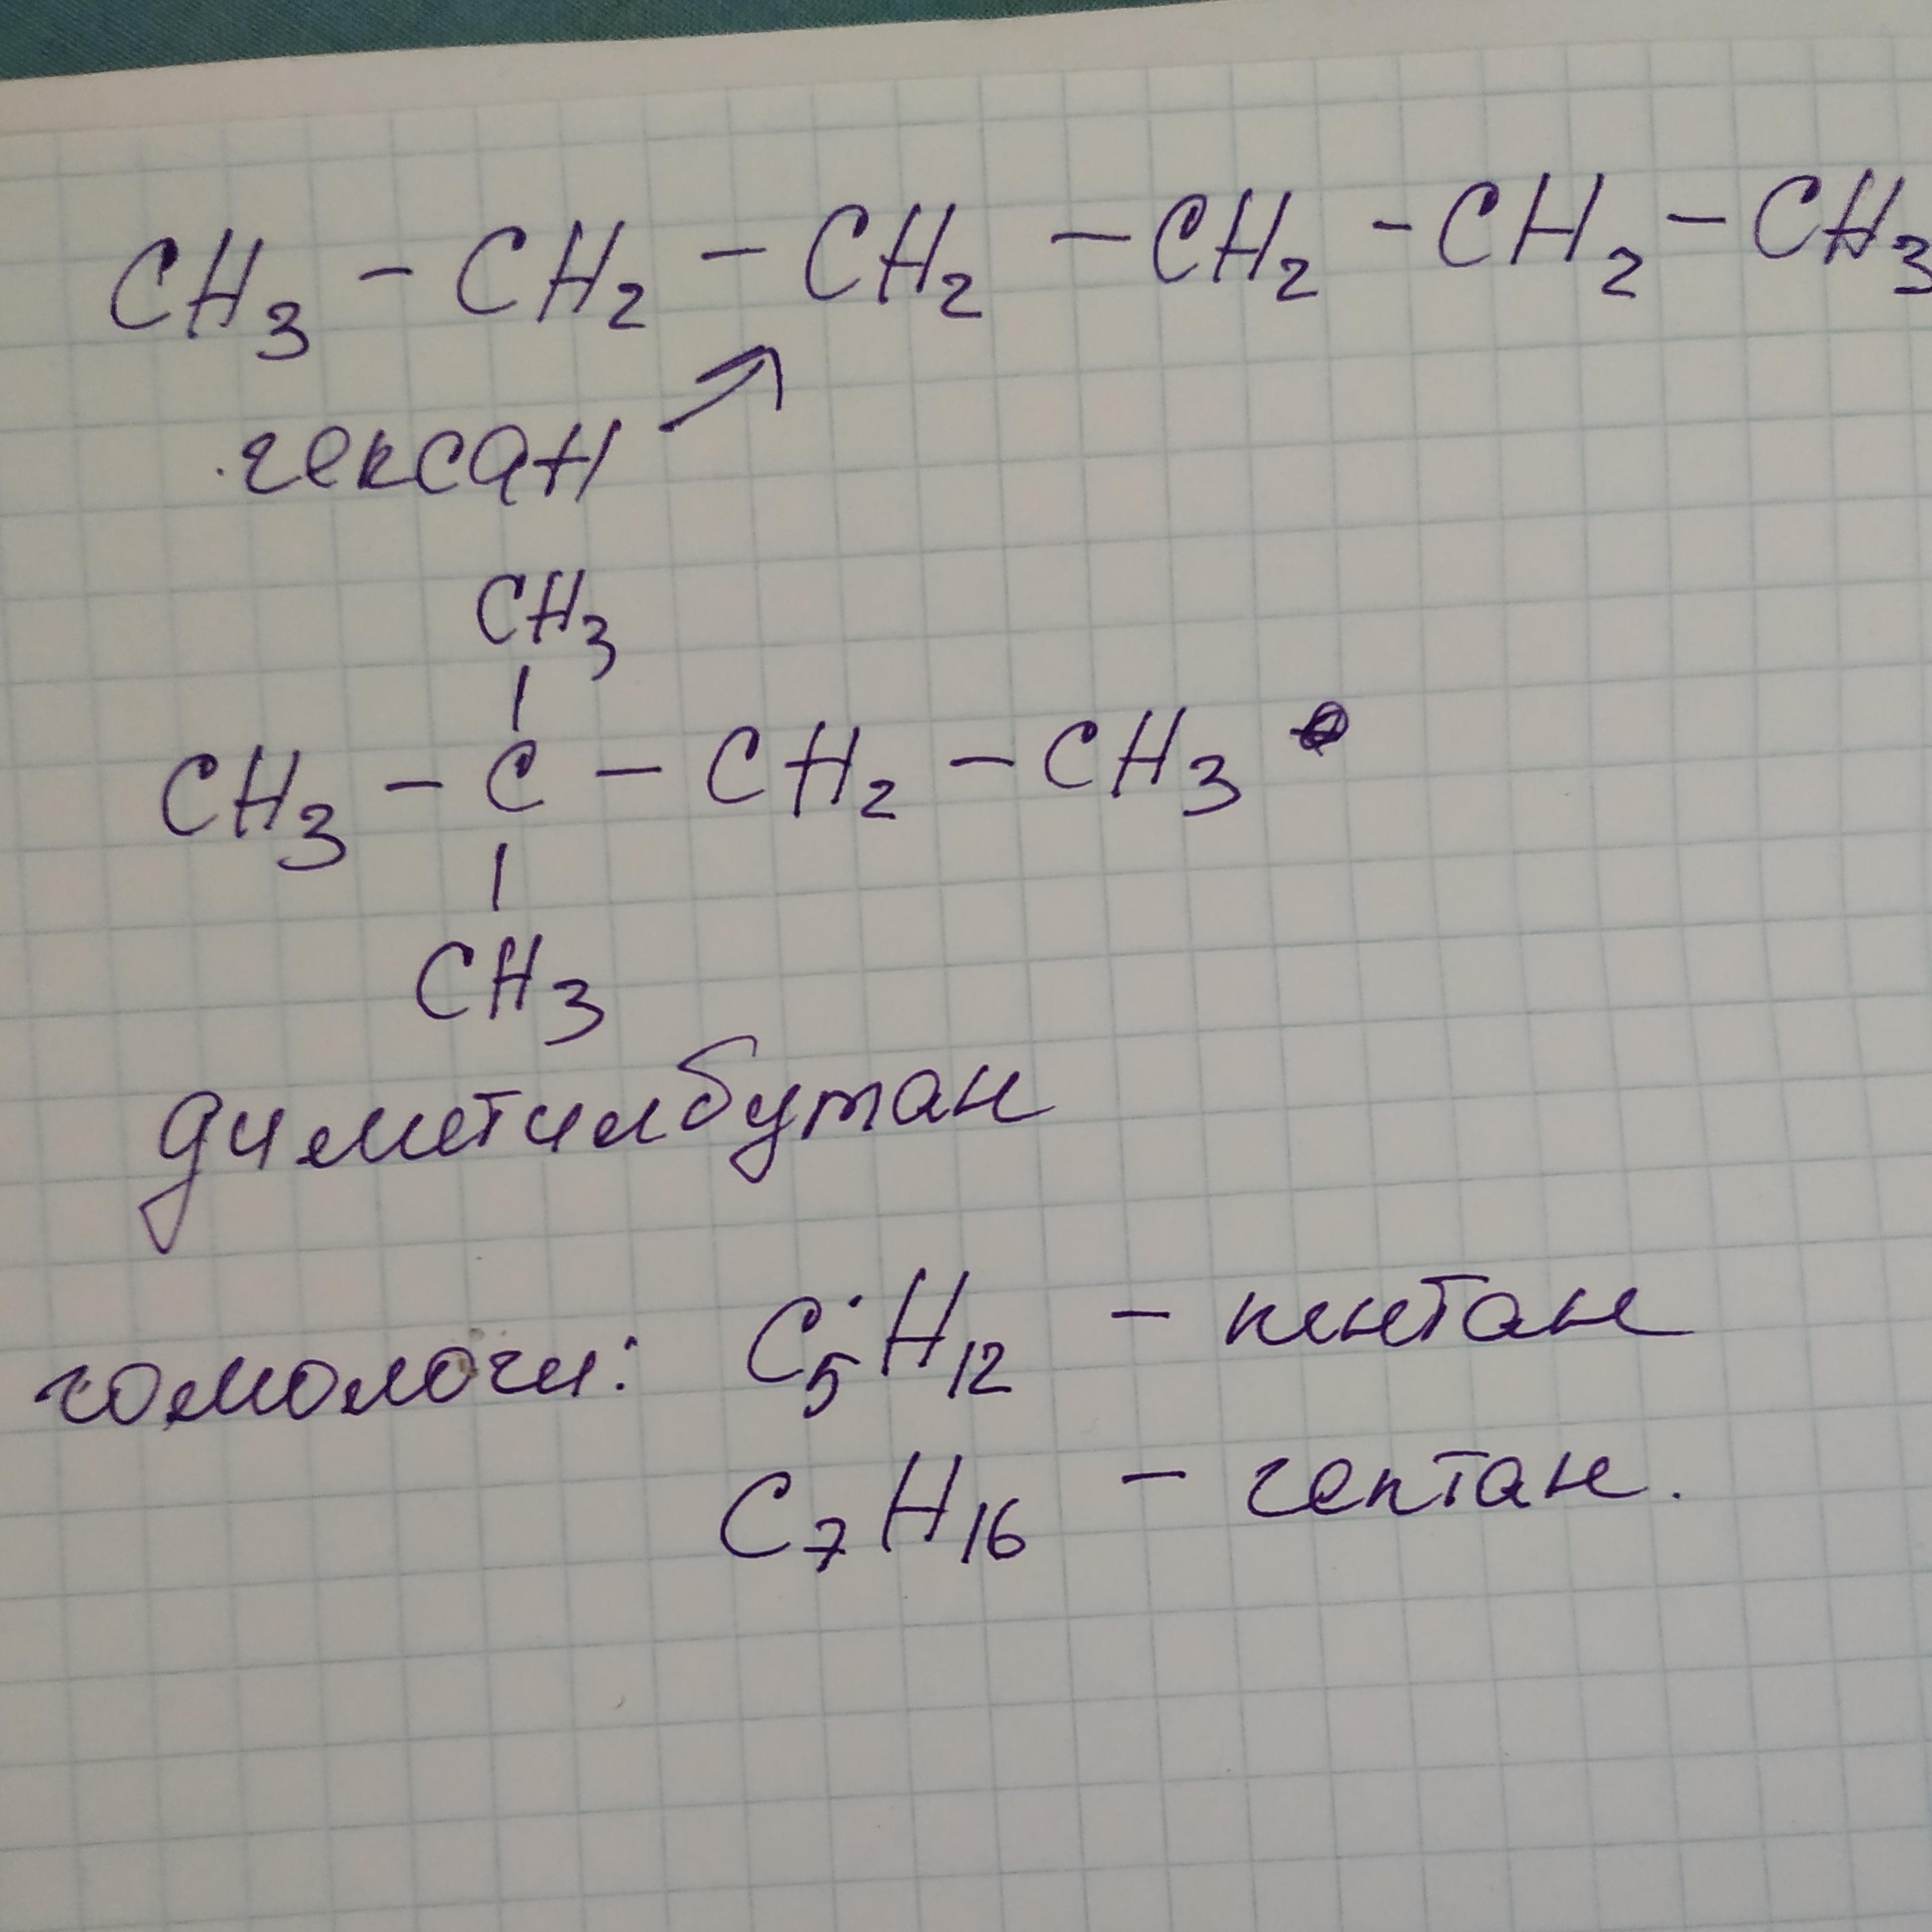 CH₃ – CH₂ – CH₂ – CH₂ – CH₂ – CH₃
гексан
CH₃
|
CH₃ – C – CH₂ – CH₃
|
CH₃
диметилбутан
гомологи: C₅H₁₂ – пентан
C₇H₁₆ – гептан.